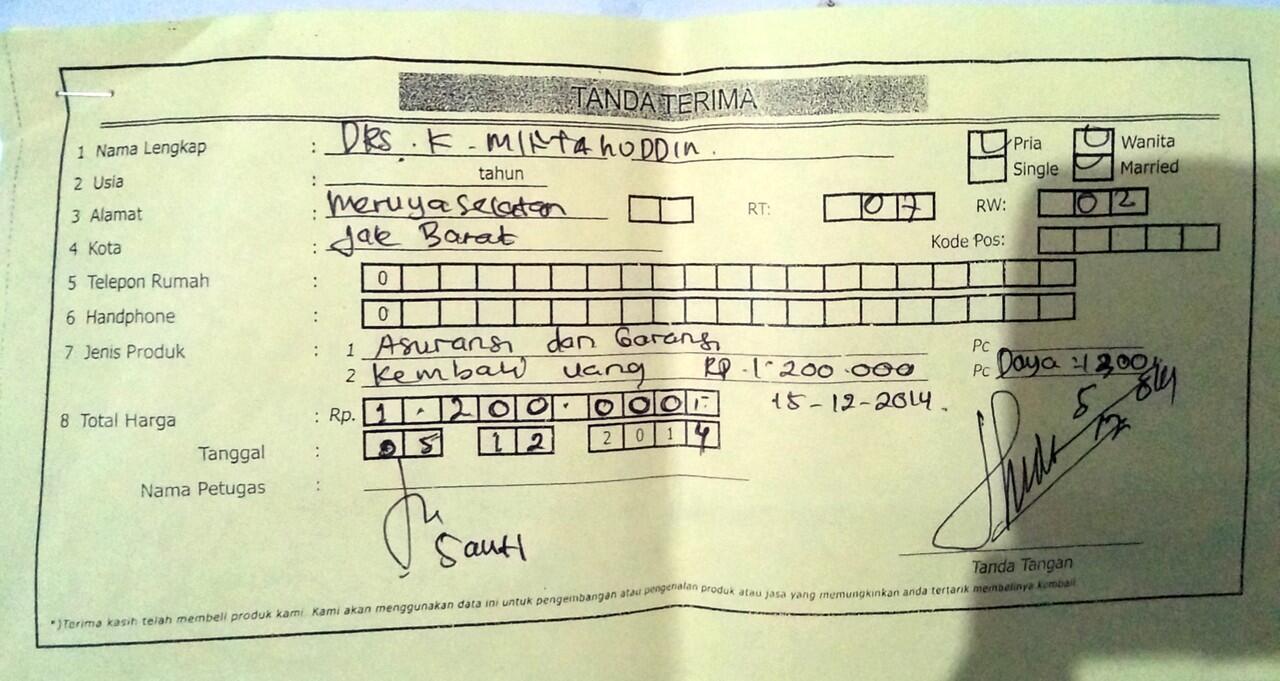 TANDA TERIMA
1 Nama Lengkap : DRS. K - MIFTAHUDDIN. Pria Wanita
2 Usia : tahun Single Married
3 Alamat : Meruya Selatan RT: 07 RW: 02
4 Kota : Jak Barat Kode Pos:
5 Telepon Rumah : 0
6 Handphone : 0
7 Jenis Produk : 1 Asuransi dan Garansi Pc
2 Kembali uang RP.1.200.000 Pc Daya : 1300
8 Total Harga : Rp. 1.200.000,- 15-12-2014.
Tanggal : 05 12 2014
5
12
Nama Petugas :
Santi
Tanda Tangan
*)Terima kasih telah membeli produk kami. Kami akan menggunakan data ini untuk pengembangan atau pengenalan produk atau jasa yang memungkinkan anda tertarik membelinya kembali